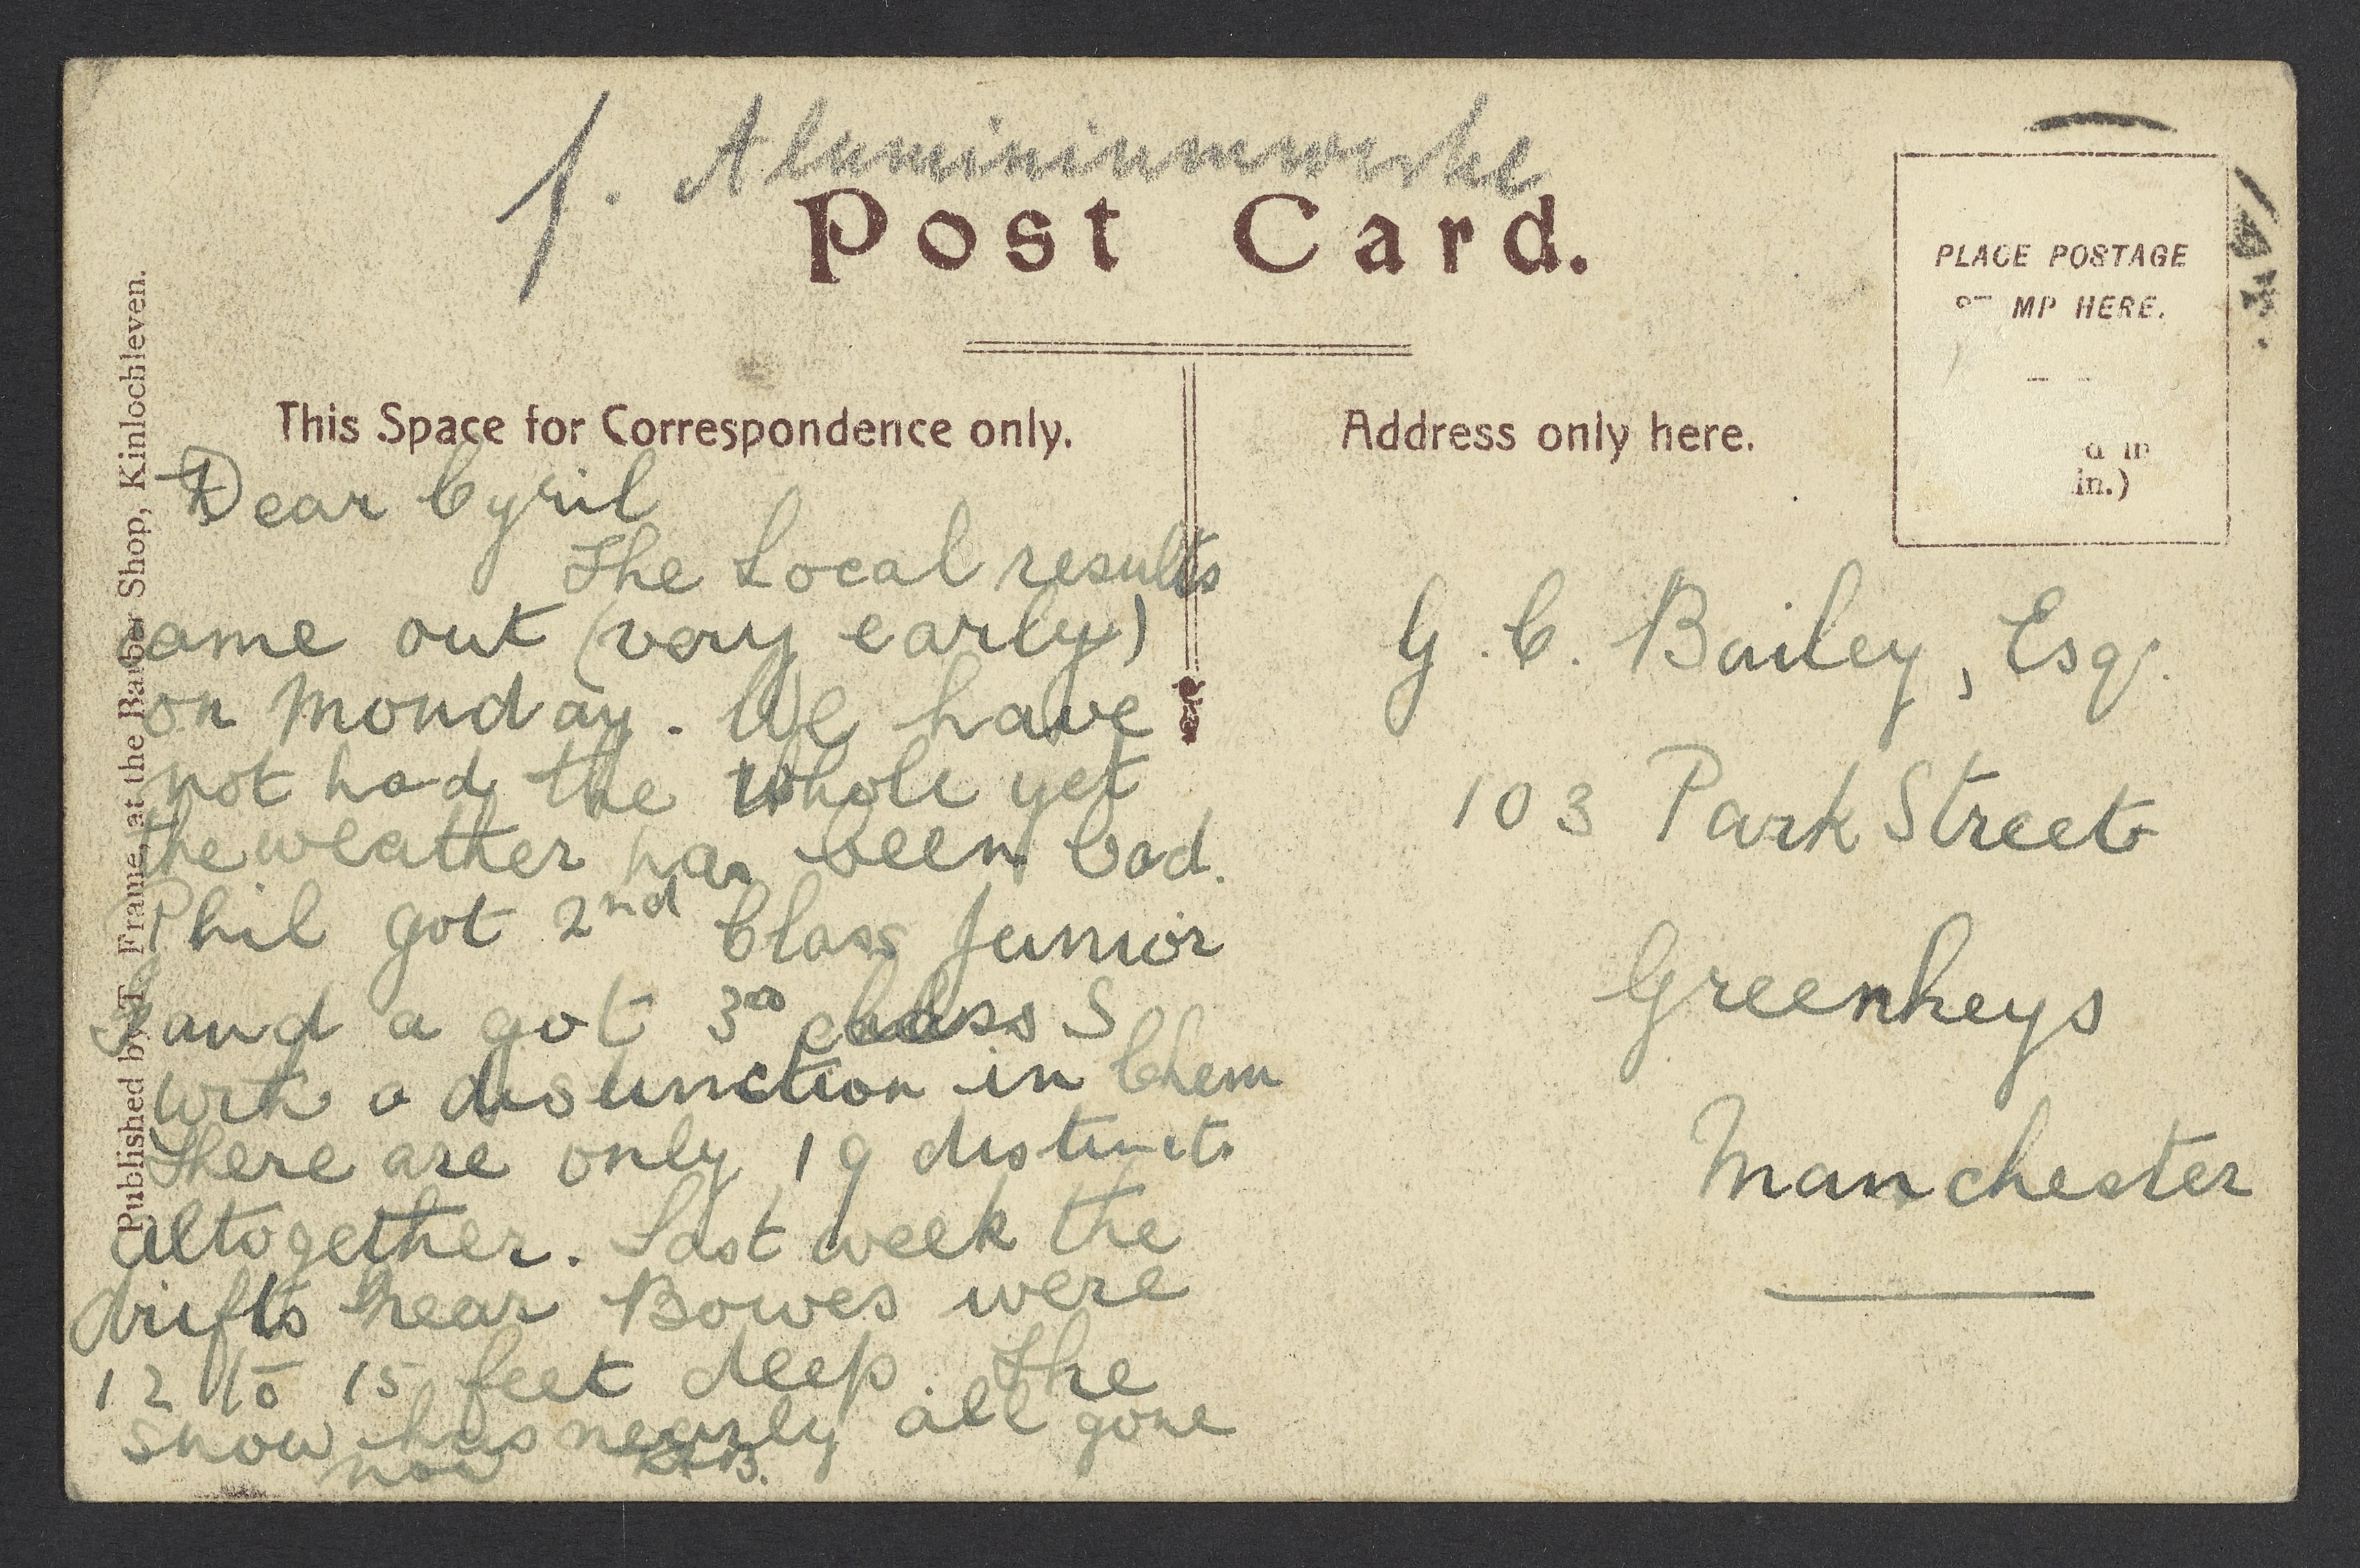 f. Aluminiumwerke
Post Card.
PLACE POSTAGE
MP HERE.
in.)
This Space for Correspondence only.
Address only here.
Published by T. Frame, at the Barber Shop, Kinlochleven.
Dear Cyril
The Local results
came out (very early)
on Monday. We have
not had the whole yet
the weather has been bad.
Phil got 2nd Class Junior
and a got 3rd class S
with a distinction in Chem
There are only 19 distinct.
altogether. Last week the
drifts near Bowes were
12 to 15 feet deep. The
snow has nearly all gone
now
G. C. Bailey, Esq.
103 Park Street
Greenheys
Manchester